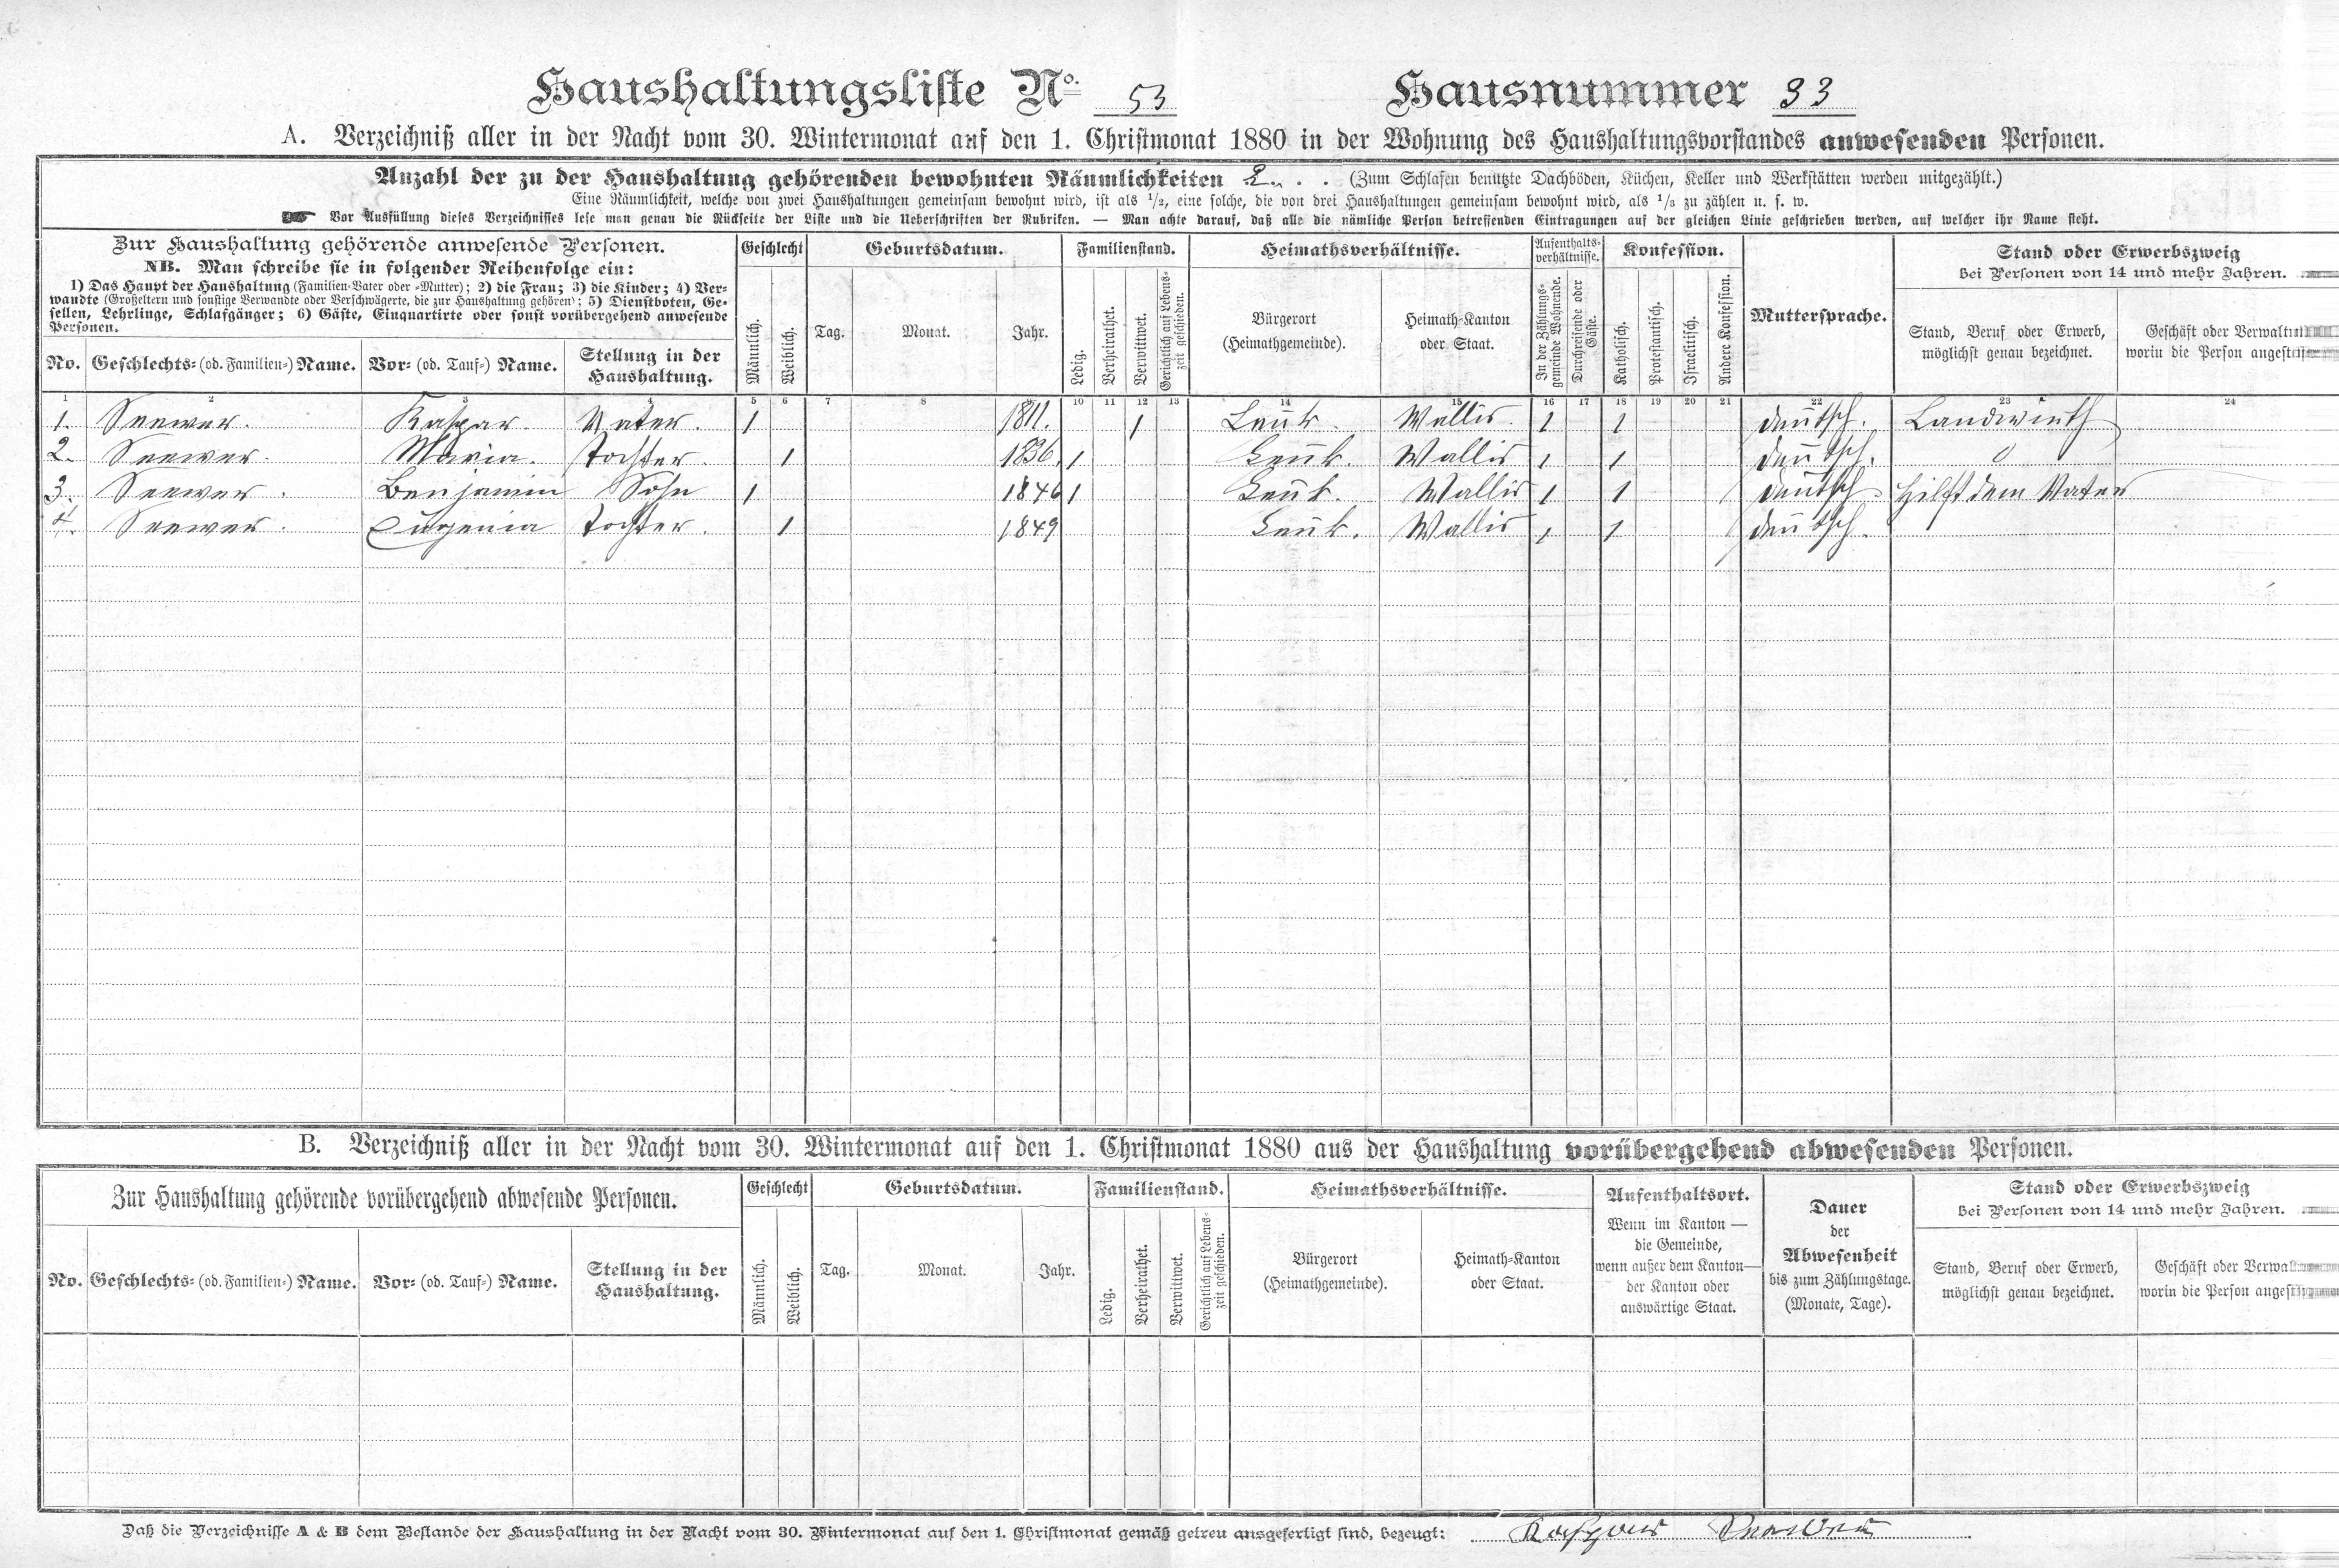 Haushaltungsliste No. 53 Hausnummer 33
A. Verzeichniß aller in der Nacht vom 30. Wintermonat auf den 1. Christmonat 1880 in der Wohnung des Haushaltungsvorstandes anwesenden Personen.
Anzahl der zu der Haushaltung gehörenden bewohnten Räumlichkeiten 2. . . (Zum Schlafen benutzte Dachböden, Küchen, Keller und Werkstätten werden mitgezählt.)
Eine Räumlichkeit, welche von zwei Haushaltungen gemeinsam bewohnt wird, ist als 1/2, eine solche, die von drei Haushaltungen gemeinsam bewohnt wird, als 1/3 zu zählen u. s. w.
Vor Ausfüllung dieses Verzeichnisses lese man genau die Rückseite der Liste und die Ueberschriften der Rubriken. — Man achte darauf, daß alle die nämliche Person betreffenden Eintragungen auf der gleichen Linie geschrieben werden, auf welcher ihr Name steht.
Zur Haushaltung gehörende anwesende Personen.
NB. Man schreibe sie in folgender Reihenfolge ein:
1) Das Haupt der Haushaltung (Familien-Vater oder -Mutter); 2) die Frau; 3) die Kinder; 4) Ver-
wandte (Großeltern und sonstige Verwandte oder Verschwägerte, die zur Haushaltung gehören); 5) Dienstboten, Ge-
sellen, Lehrlinge, Schlafgänger; 6) Gäste, Einquartirte oder sonst vorübergehend anwesende
Personen.
No. Geschlechts- (od. Familien-) Name. Vor- (od. Tauf-) Name. Stellung in der
Haushaltung.
Geschlecht
Männlich. Weiblich.
Geburtsdatum.
Tag. Monat. Jahr.
Familienstand.
Ledig. Verheirathet. Verwittwet. Gerichtlich auf Lebens-
zeit geschieden.
Heimathsverhältnisse.
Bürgerort
(Heimathgemeinde).
Heimath-Kanton
oder Staat.
Aufenthalts-
verhältnisse.
In der Zählungs-
gemeinde Wohnende.
Durchreisende oder
Gäste.
Konfession.
Katholisch. Protestantisch. Israelitisch. Andere Konfession.
Muttersprache.
Stand oder Erwerbszweig
bei Personen von 14 und mehr Jahren.
Stand, Beruf oder Erwerb,
möglichst genau bezeichnet.
Geschäft oder
worin die Person
1 2 3 4 5 6 7 8 9 10 11 12 13 14 15 16 17 18 19 20 21 22 23 24
1. Seewer. Kaspar. Vater. 1 1811. 1 Leuk. Wallis. 1 1 deutsch. Landwirth
2. Seewer. Maria. Tochter. 1 1836. 1 Leuk. Wallis 1 1 deutsch.
3. Seewer. Benjamin Sohn 1 1846 1 Leuk. Wallis 1 1 deutsch Hilft dem Vater
4. Seewer. Eugenia Tochter. 1 1849 Leuk. Wallis 1 1 deutsch.
B. Verzeichniß aller in der Nacht vom 30. Wintermonat auf den 1. Christmonat 1880 aus der Haushaltung vorübergehend abwesenden Personen.
Zur Haushaltung gehörende vorübergehend abwesende Personen.
No. Geschlechts- (od. Familien-) Name. Vor- (od. Tauf-) Name. Stellung in der
Haushaltung.
Geschlecht
Männlich. Weiblich.
Geburtsdatum.
Tag. Monat. Jahr.
Familienstand.
Ledig. Verheirathet. Verwittwet. Gerichtlich auf Lebens-
zeit geschieden.
Heimathsverhältnisse.
Bürgerort
(Heimathgemeinde).
Heimath-Kanton
oder Staat.
Aufenthaltsort.
Wenn im Kanton —
die Gemeinde,
wenn außer dem Kanton—
der Kanton oder
auswärtige Staat.
Dauer
der
Abwesenheit
bis zum Zählungstage.
(Monate, Tage).
Stand oder Erwerbszweig
bei Personen von 14 und mehr Jahren.
Stand, Beruf oder Erwerb,
möglichst genau bezeichnet.
Geschäft oder
worin die Person
Daß die Verzeichnisse A & B dem Bestande der Haushaltung in der Nacht vom 30. Wintermonat auf den 1. Christmonat gemäß getreu ausgefertigt sind, bezeugt: Kaspar Seewer